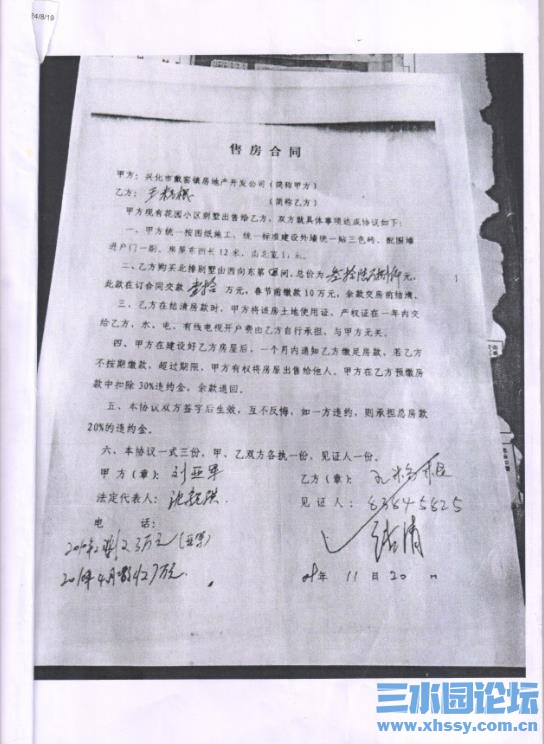 售房合同
甲方：兴化市戴窑镇房地产开发公司（简称甲方）
乙方： （简称乙方）
甲方现有花园小区别墅出售给乙方，双方就具体事项达成协议如下：
一、甲方统一按图纸施工，统一标准建设外墙统一贴三色砖，配围墙
进户门一副，房屋东西长12米，南北宽 米。
二、乙方购买北排别墅出西向东第 间，总价为 元，
此款在订合同交款 壹拾 万元，春节前缴款10万元，余款交房前结清。
三、乙方在结清房款时，甲方将该房土地使用证、产权证在一年内交
给乙方，水、电、有线电视开户费由乙方自行承担，与甲方无关。
四、甲方在建设好乙方房屋后，一个月内通知乙方缴足房款，若乙方
不按期缴款，超过期限，甲方有权将房屋出售给他人。甲方在乙方预缴房
款中扣除30%违约金，余款退回。
五、本协议双方签字后生效，互不反悔，如一方违约，则承担总房款
20%的违约金。
六、本协议一式三份，甲、乙双方各执一份，见证人一份。
甲方（章）：刘亚军 乙方（章）：
法定代表人： 见证人：83845825
电话：
年 11 日 20
三水园论坛
www.xhssy.com.cn